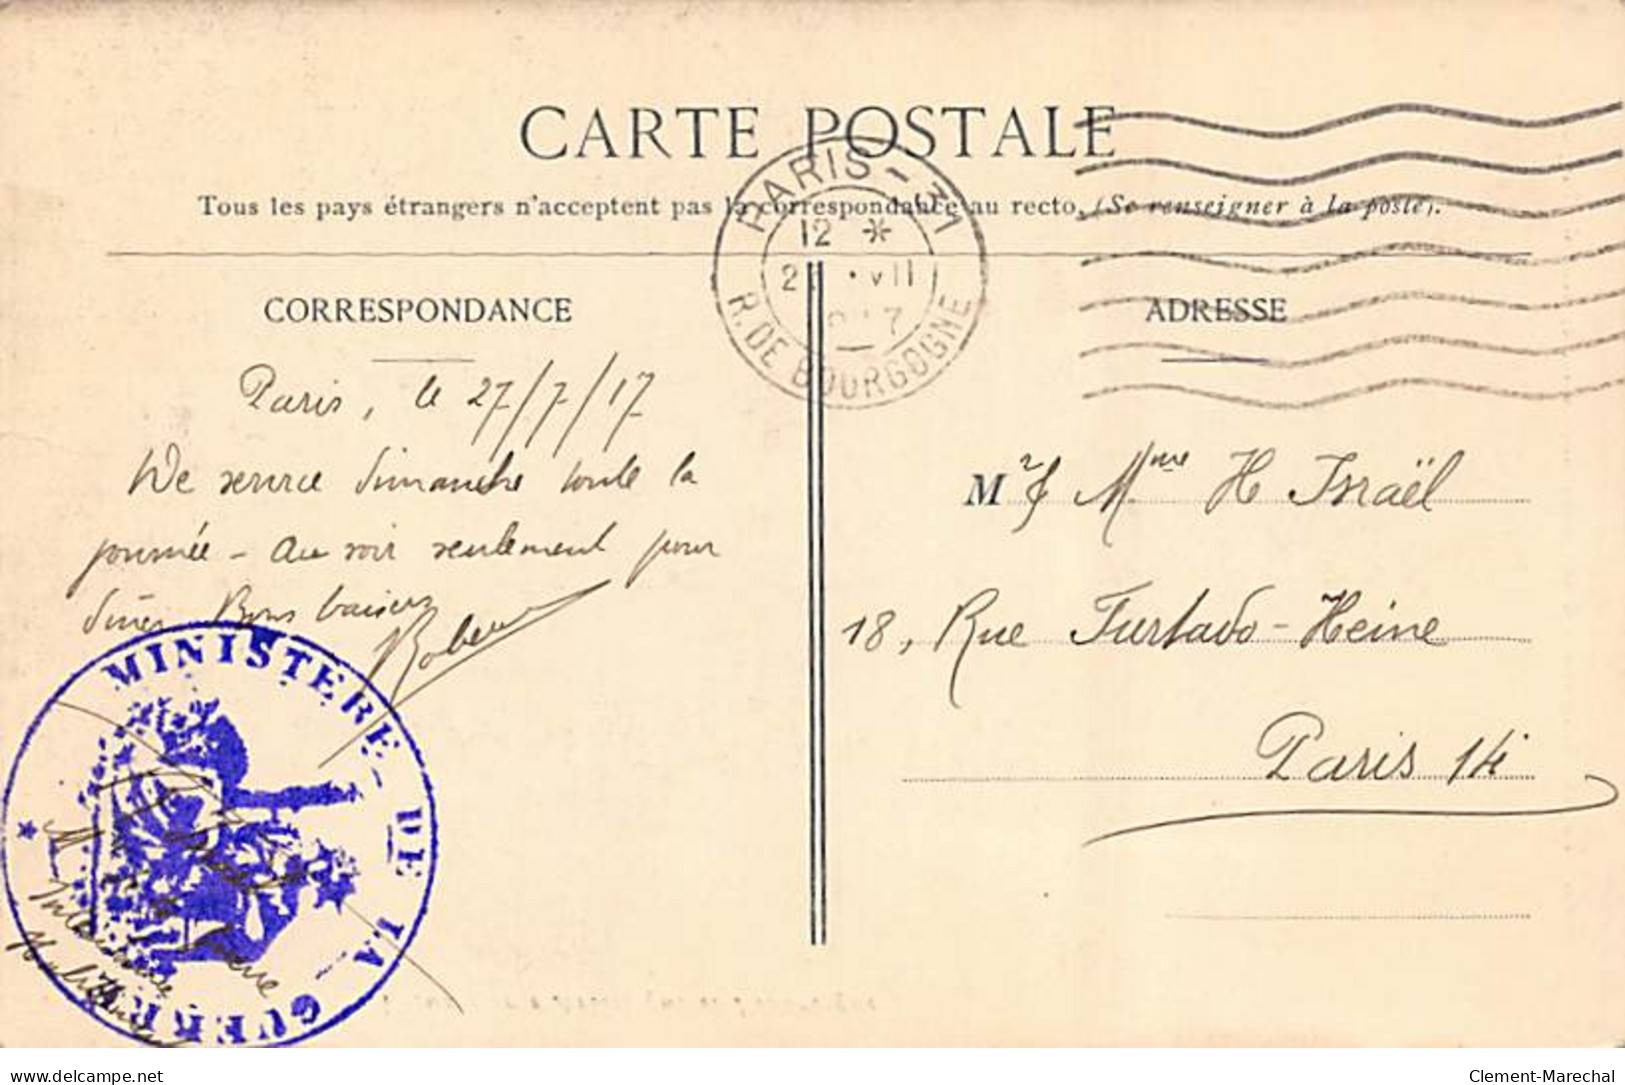 CARTE POSTALE
Tous les pays étrangers n'acceptent pas la correspondance au recto. (Se renseigner à la poste).
PARIS - 31
12 *
2 · VII
17
R. DE BOURGOGNE
CORRESPONDANCE
Paris, le 27/7/17
De service dimanche toute la
journée - Au soir seulement pour
dîner Bons baisers
Robert
MINISTERE DE LA GUERRE
ADRESSE
Mr & Mme H Israël
18, Rue Furtado-Heine
Paris 14
delcampe.net
Clement-Marechal